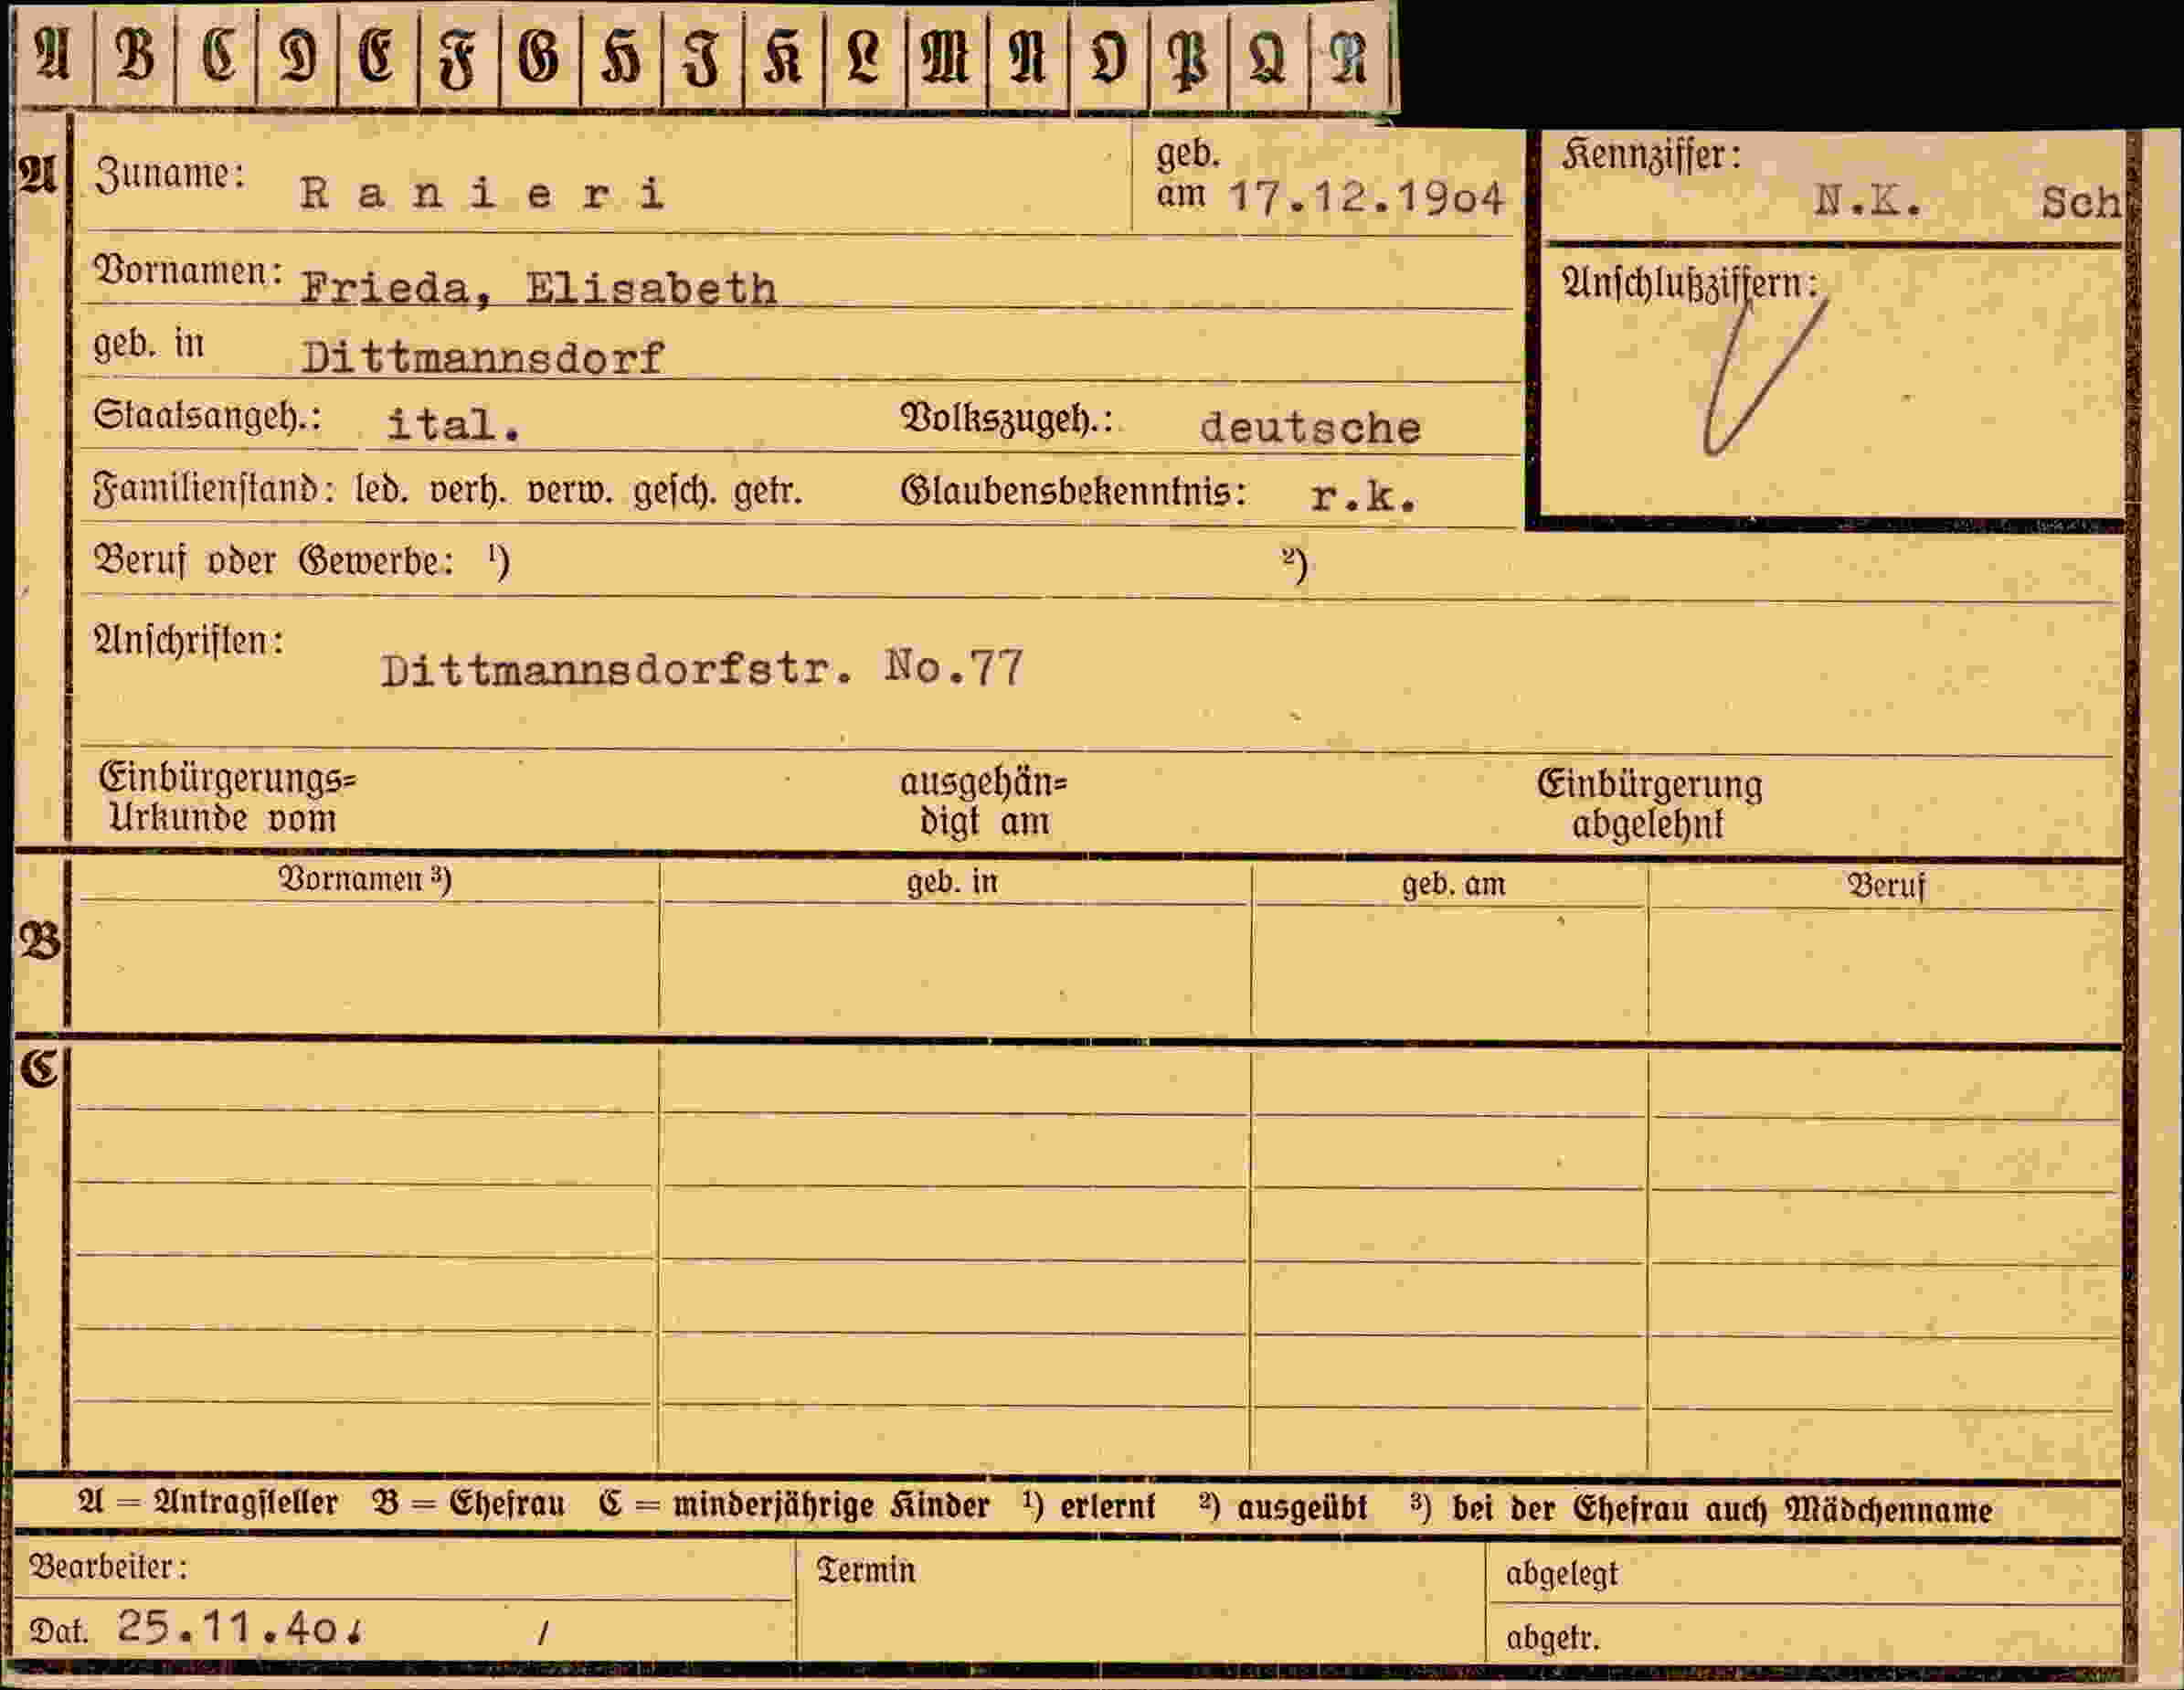 A B C D E F G H I K L M N O P Q R
A Zuname: Ranieri geb. am 17.12.1904
Kennziffer: N.K. Sch
Vornamen: Frieda, Elisabeth
Anschlußziffern:
geb. in Dittmannsdorf
Staatsangeh.: ital. Volkszugeh.: deutsche
Familienstand: led. verh. verw. gesch. getr. Glaubensbekenntnis: r.k.
Beruf oder Gewerbe: ¹) ²)
Anschriften:
Dittmannsdorfstr. No.77
Einbürgerungs= ausgehän= Einbürgerung
Urkunde vom digt am abgelehnt
Vornamen ³) geb. in geb. am Beruf
B
C
A = Antragsteller B = Ehefrau C = minderjährige Kinder ¹) erlernt ²) ausgeübt ³) bei der Ehefrau auch Mädchenname
Bearbeiter: Termin abgelegt
Dat. 25.11.40. / abgetr.